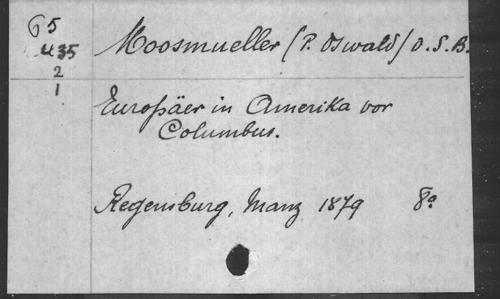 65
435
2
1
Moosmueller (P. Oswald) O.S.B.
Europäer in Amerika vor
Columbus.
Regensburg, Manz 1879 8º